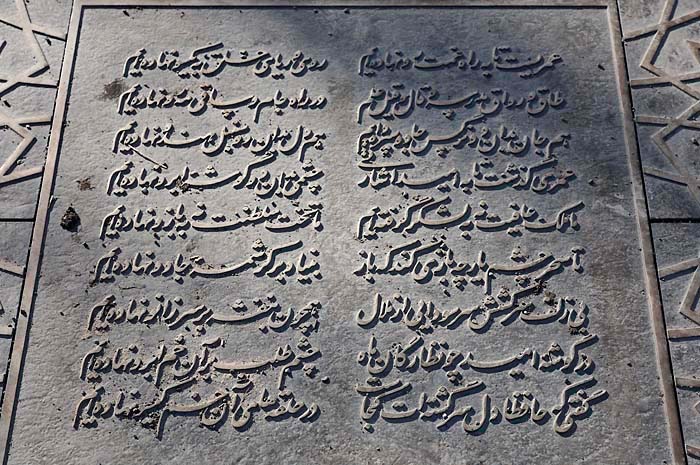 عمریست تا به راه غمت رو نهاده‌ایم روی و ریای خلق به یک سو نهاده‌ایم
طاق و رواق مدرسه و قال و قیل علم در راه جام و ساقی مه رو نهاده‌ایم
هم جان بدان دو نرگس جادو سپرده‌ایم هم دل بدان دو سنبل هندو نهاده‌ایم
عمری گذشت تا به امید اشارتی چشمی بدان دو گوشه ابرو نهاده‌ایم
ما ملک عافیت نه به لشکر گرفته‌ایم ما تخت سلطنت نه به بازو نهاده‌ایم
تا سحر چشم یار چه بازی کند که باز بنیاد بر کرشمه جادو نهاده‌ایم
بی زلف سرکشش سر سودایی از ملال همچون بنفشه بر سر زانو نهاده‌ایم
در گوشه امید چو نظارگان ماه چشم طلب بر آن خم ابرو نهاده‌ایم
گفتی که حافظا دل سرگشته‌ات کجاست در حلقه‌های آن خم گیسو نهاده‌ایم